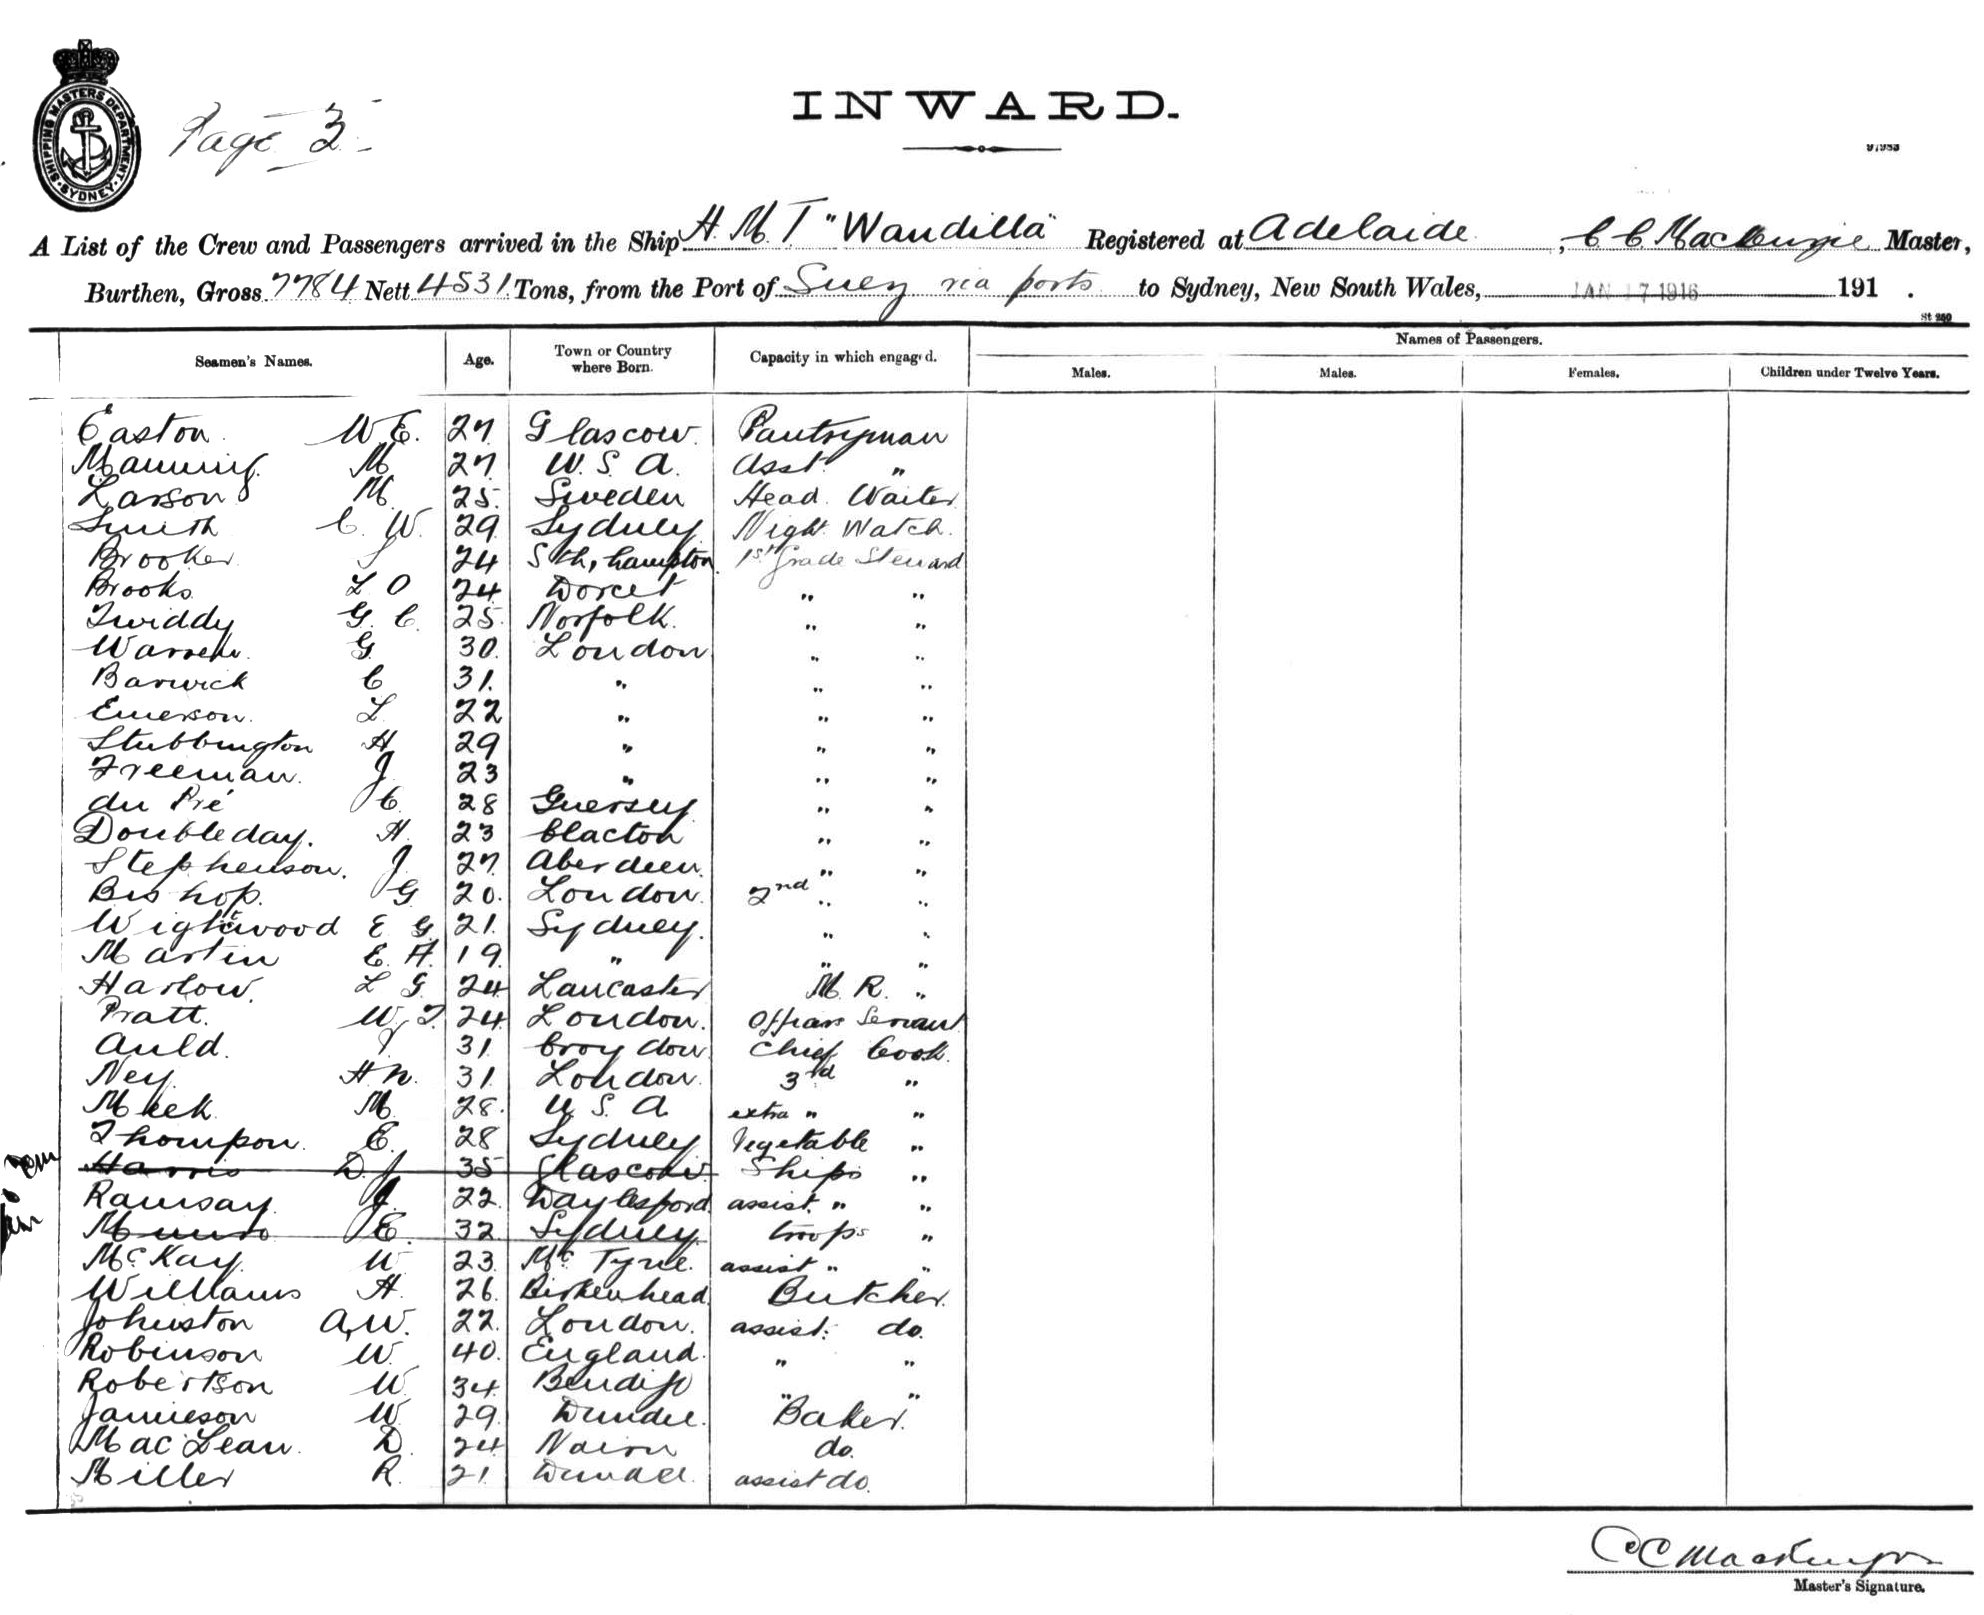 SHIPPING MASTERS DEPARTMENT
SYDNEY
Page 3
INWARD.
A List of the Crew and Passengers arrived in the Ship H. M. T "Wandilla" Registered at Adelaide, C. C. Mackenzie Master,
Burthen, Gross 7784 Nett 4531 Tons, from the Port of Suez via ports to Sydney, New South Wales, JAN 17 1916 191 .
St 250
Seamen's Names. Age. Town or Country where Born. Capacity in which engaged. Names of Passengers.
Males. Males. Females. Children under Twelve Years.
Easton W. E. 27 Glascow Pantryman
Manning M 27 U. S. A. Asst. "
Larson M. 25 Sweden Head Waiter
Smith C. W. 29 Sydney Night Watch
Brooker J 24 Sth, hampton 1st grade Steward
Brooks L O 24 Dorcet " "
Twiddy G. C. 25 Norfolk " "
Warren G. 30 London " "
Barwick C 31 " " "
Emerson L 22 " " "
Stubbington H 29 " " "
Freeman J. 23 " " "
du Pré C. 28 Guersey " "
Doubleday. H. 23 Clacton " "
Stephenson. J. 27 Aberdeen " "
Bishop. G 20 London 2nd " "
Wightwood E G. 21 Sydney " "
Martin E. H. 19 " " "
Harlow. L G. 24 Lancaster M. R. "
Pratt. W. T. 24 London. Officers Servant
Auld. J 31 Croydon Chief Cook
Ney. H N. 31 London 3rd "
Meek M. 28 U. S. A extra " "
Thompson E. 28 Sydney Vegetable "
Harris D. J 35 Glascow Ships "
Ramsay J. 22 Daylesford assist. " "
Munro E. 32 Sydney troops "
McKay W 23 Mc Tyre assist " "
Williams H. 26 Birkenhead Butcher
Johnston A. W. 22 London. assist: do.
Robinson W. 40 England " "
Robertson W 34 Bendigo " "
Jamieson W. 29 Dundee Baker.
Mac Lean. D. 24 Nairn do.
Miller R. 21 Dundee assist do.
C C Mackenzie
Master's Signature.